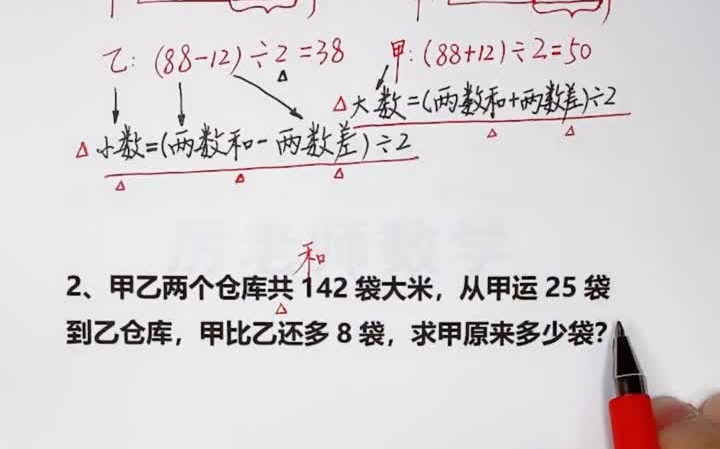 乙: (88-12)÷2=38 甲: (88+12)÷2=50
大数=(两数和+两数差)÷2
小数=(两数和-两数差)÷2
厉老师数学
和
2、甲乙两个仓库共 142 袋大米，从甲运 25 袋
到乙仓库，甲比乙还多 8 袋，求甲原来多少袋？